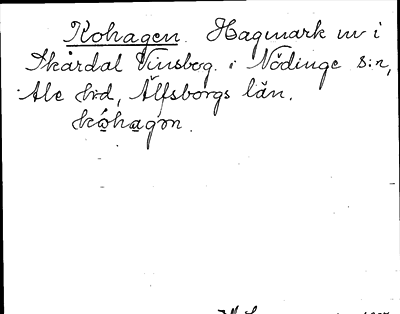 Kohagen. Hagmark uv i
Skårdal Vinsbog. i Nödinge s:n,
Ale hd, Älfsborgs län.
kǿhagən.